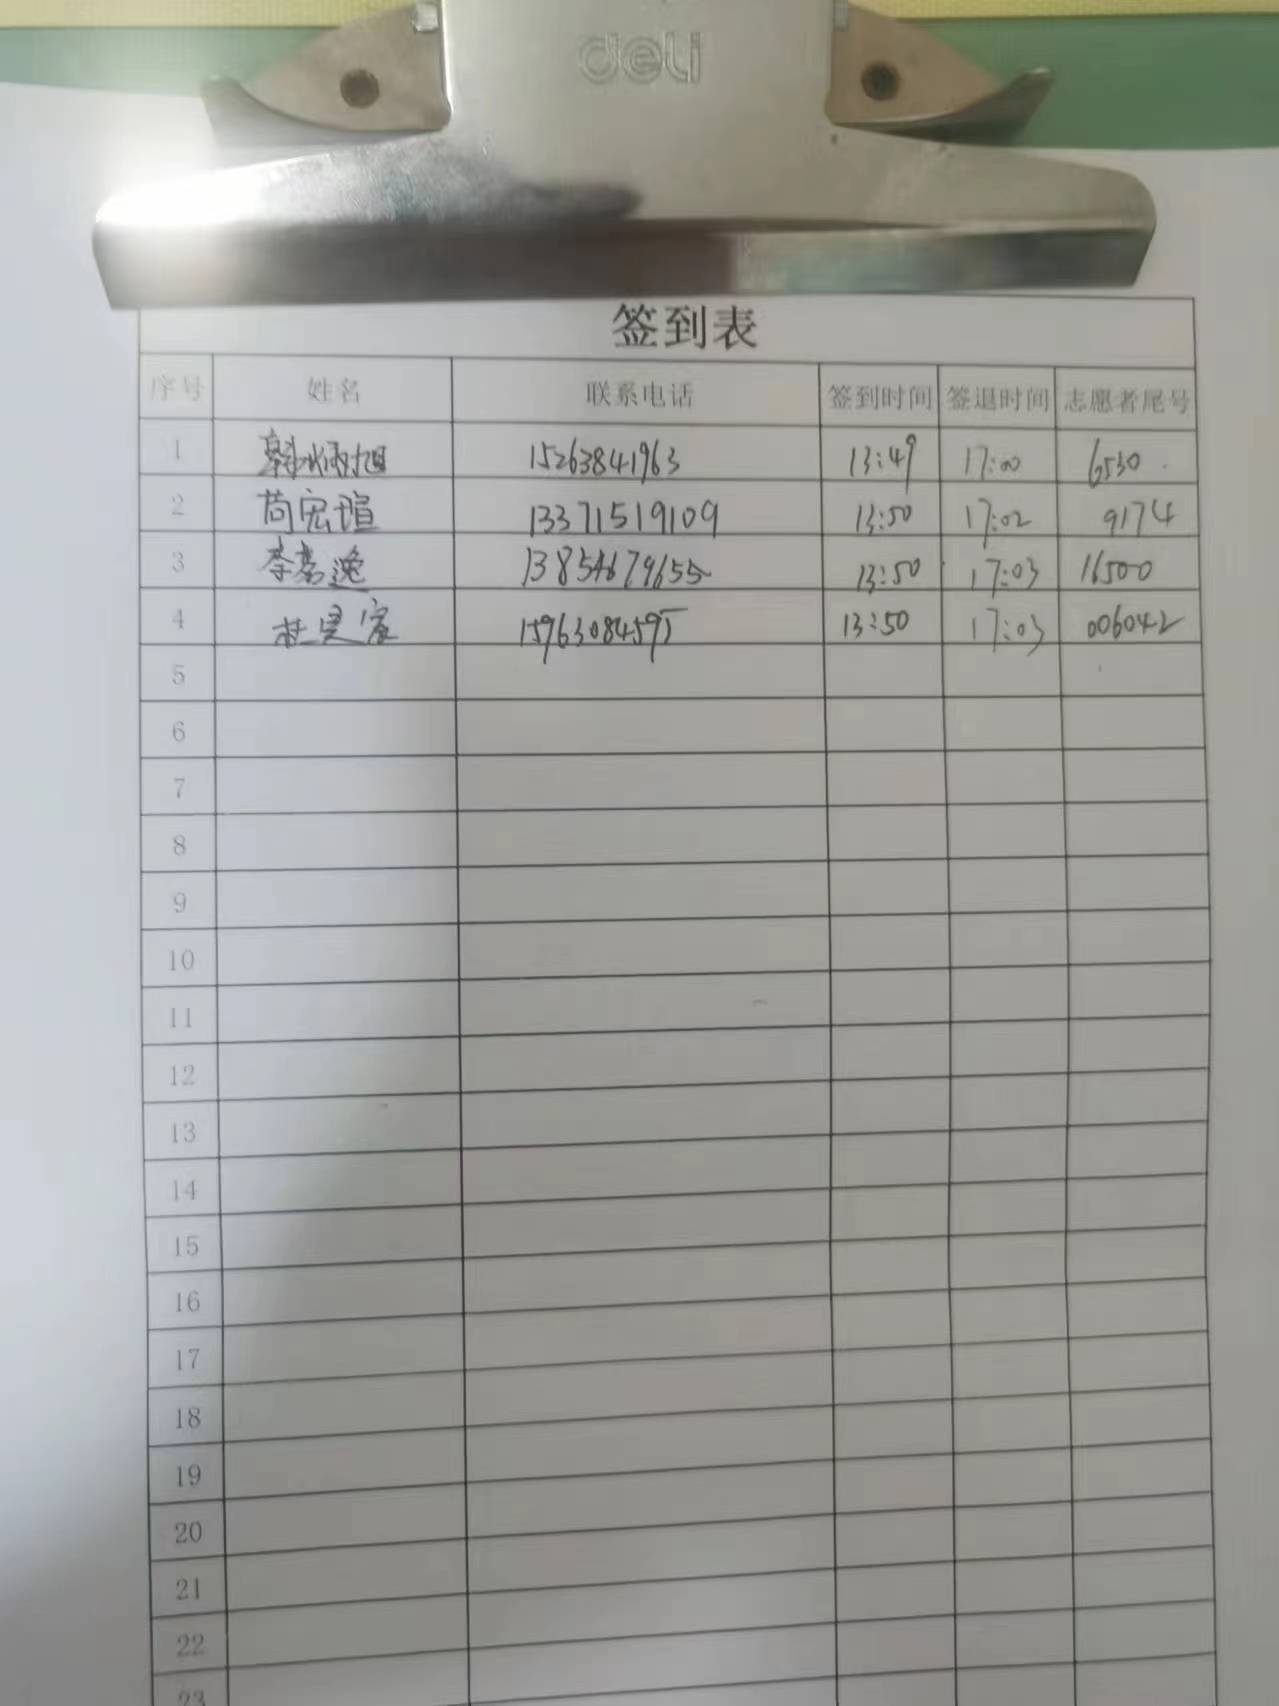 deli
签到表
序号 姓名 联系电话 签到时间 签退时间 志愿者尾号
1 15263841963 13:49 17:00 6530
2 苘宏瑄 13371519109 13:50 17:02 9174
3 李嘉逸 13854679655 13:50 17:03 16500
4 杜昊宸 15963084595 13:50 17:03 006042
5
6
7
8
9
10
11
12
13
14
15
16
17
18
19
20
21
22
23